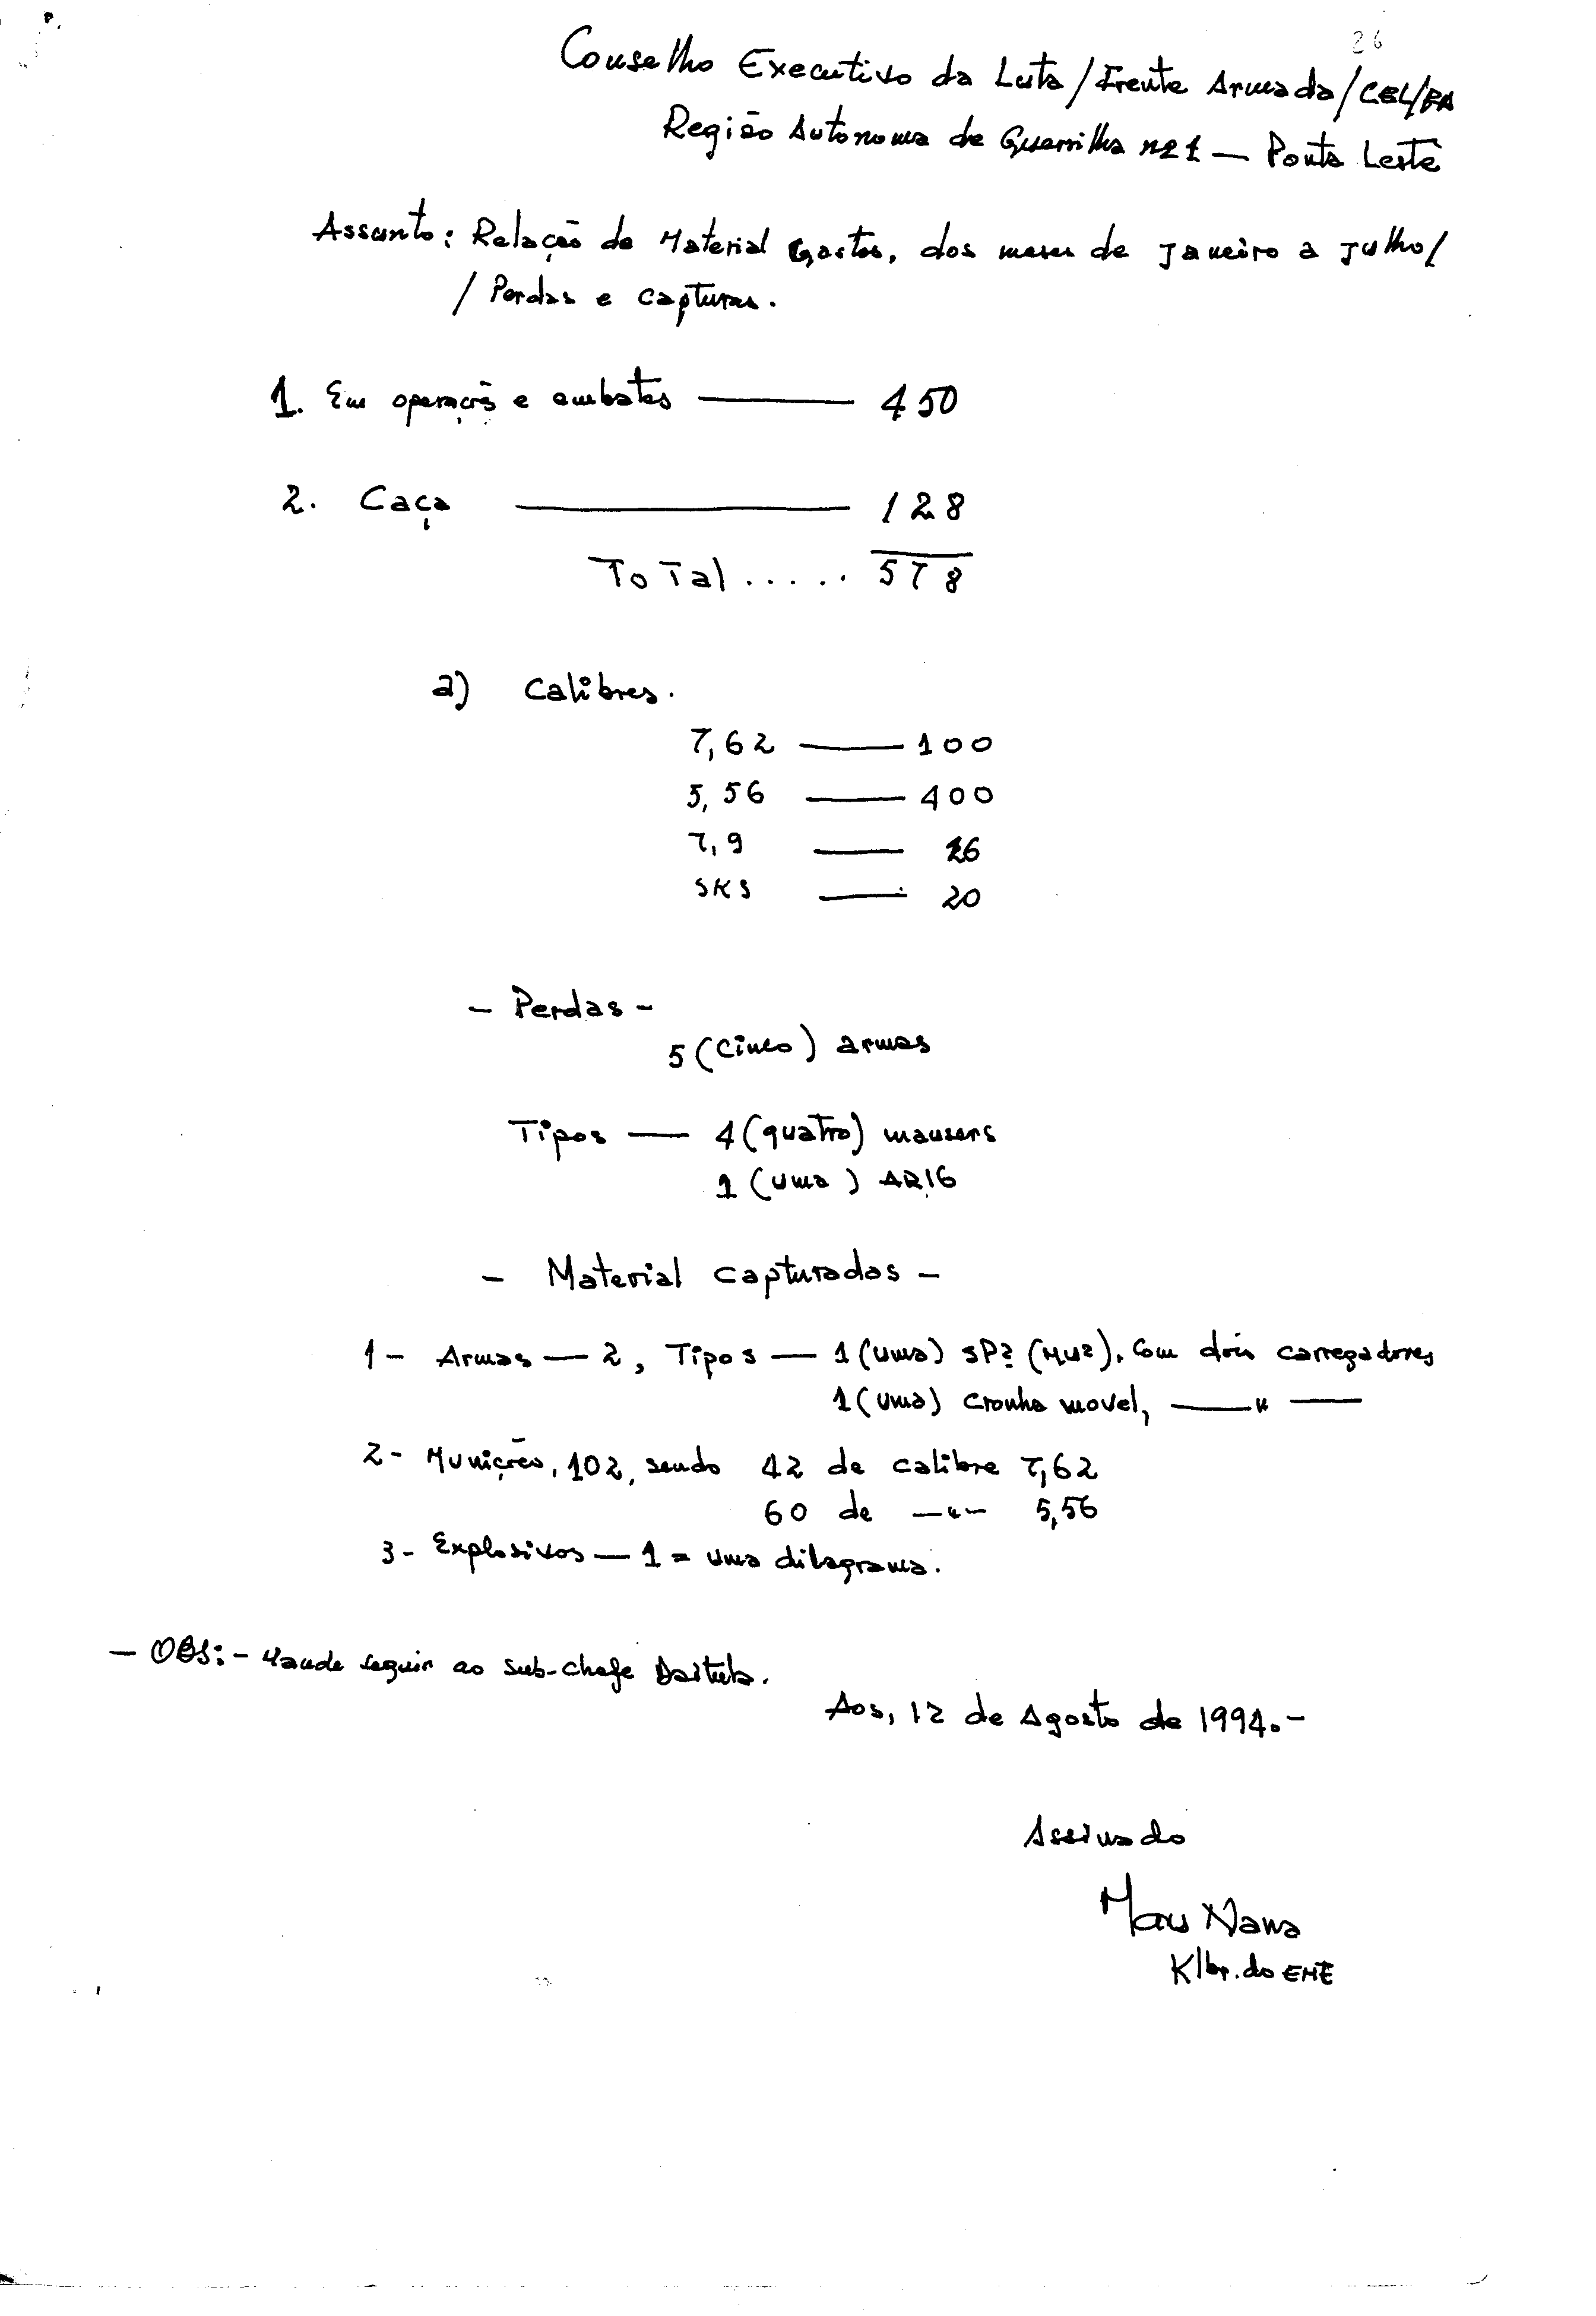 26
Conselho Executivo da Luta/Frente Armada/CEL/FA
Região Autonoma de Guerrilha nº 1 — Ponta Leste
Assunto: Relação de Material Gastos, dos meses de Janeiro a Julho/
/ Perdas e capturas.
1. Em operações e embates ——— 450
2. Caça ——— 128
Total ..... 578
a) Calibres.
7,62 —— 100
5,56 —— 400
7,9 —— 26
SKS —— 20
- Perdas -
5 (cinco) armas
Tipos — 4 (quatro) mausers
1 (uma) AR16
- Material capturadas -
1- Armas — 2, Tipos — 1 (uma) SP2 (MU2). Com dois carregadores
1 (uma) cronha movel, —— " ——
2- Munições, 102, sendo 42 de calibre 7,62
60 de —"— 5,56
3- Explosivos — 1 = uma dilagrama.
- OBS: - Mande seguir ao sub-chefe
Aos, 12 de Agosto de 1994.-
Assinado
Mau Nana
K/br. do EME